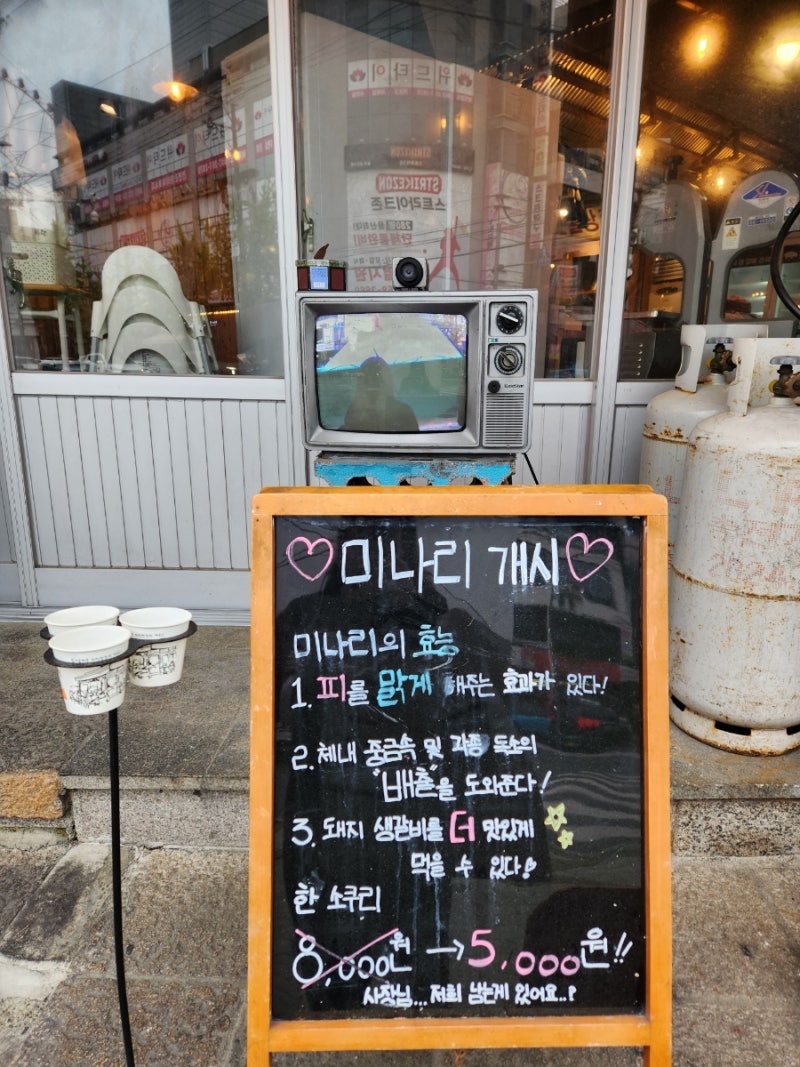 위드타이
STRIKEZON
STRIKEZON
스트라이크존
GoldStar
미나리 개시
미나리의 효능
1. 피를 맑게 해주는 효과가 있다!
2. 체내 중금속 및 각종 독소의
"배출"을 도와준다!
3. 돼지 생갈비를 더 맛있게
먹을 수 있다!
한 소쿠리
8,000원 → 5,000원!!
사장님... 저희 남는게 있어요..?